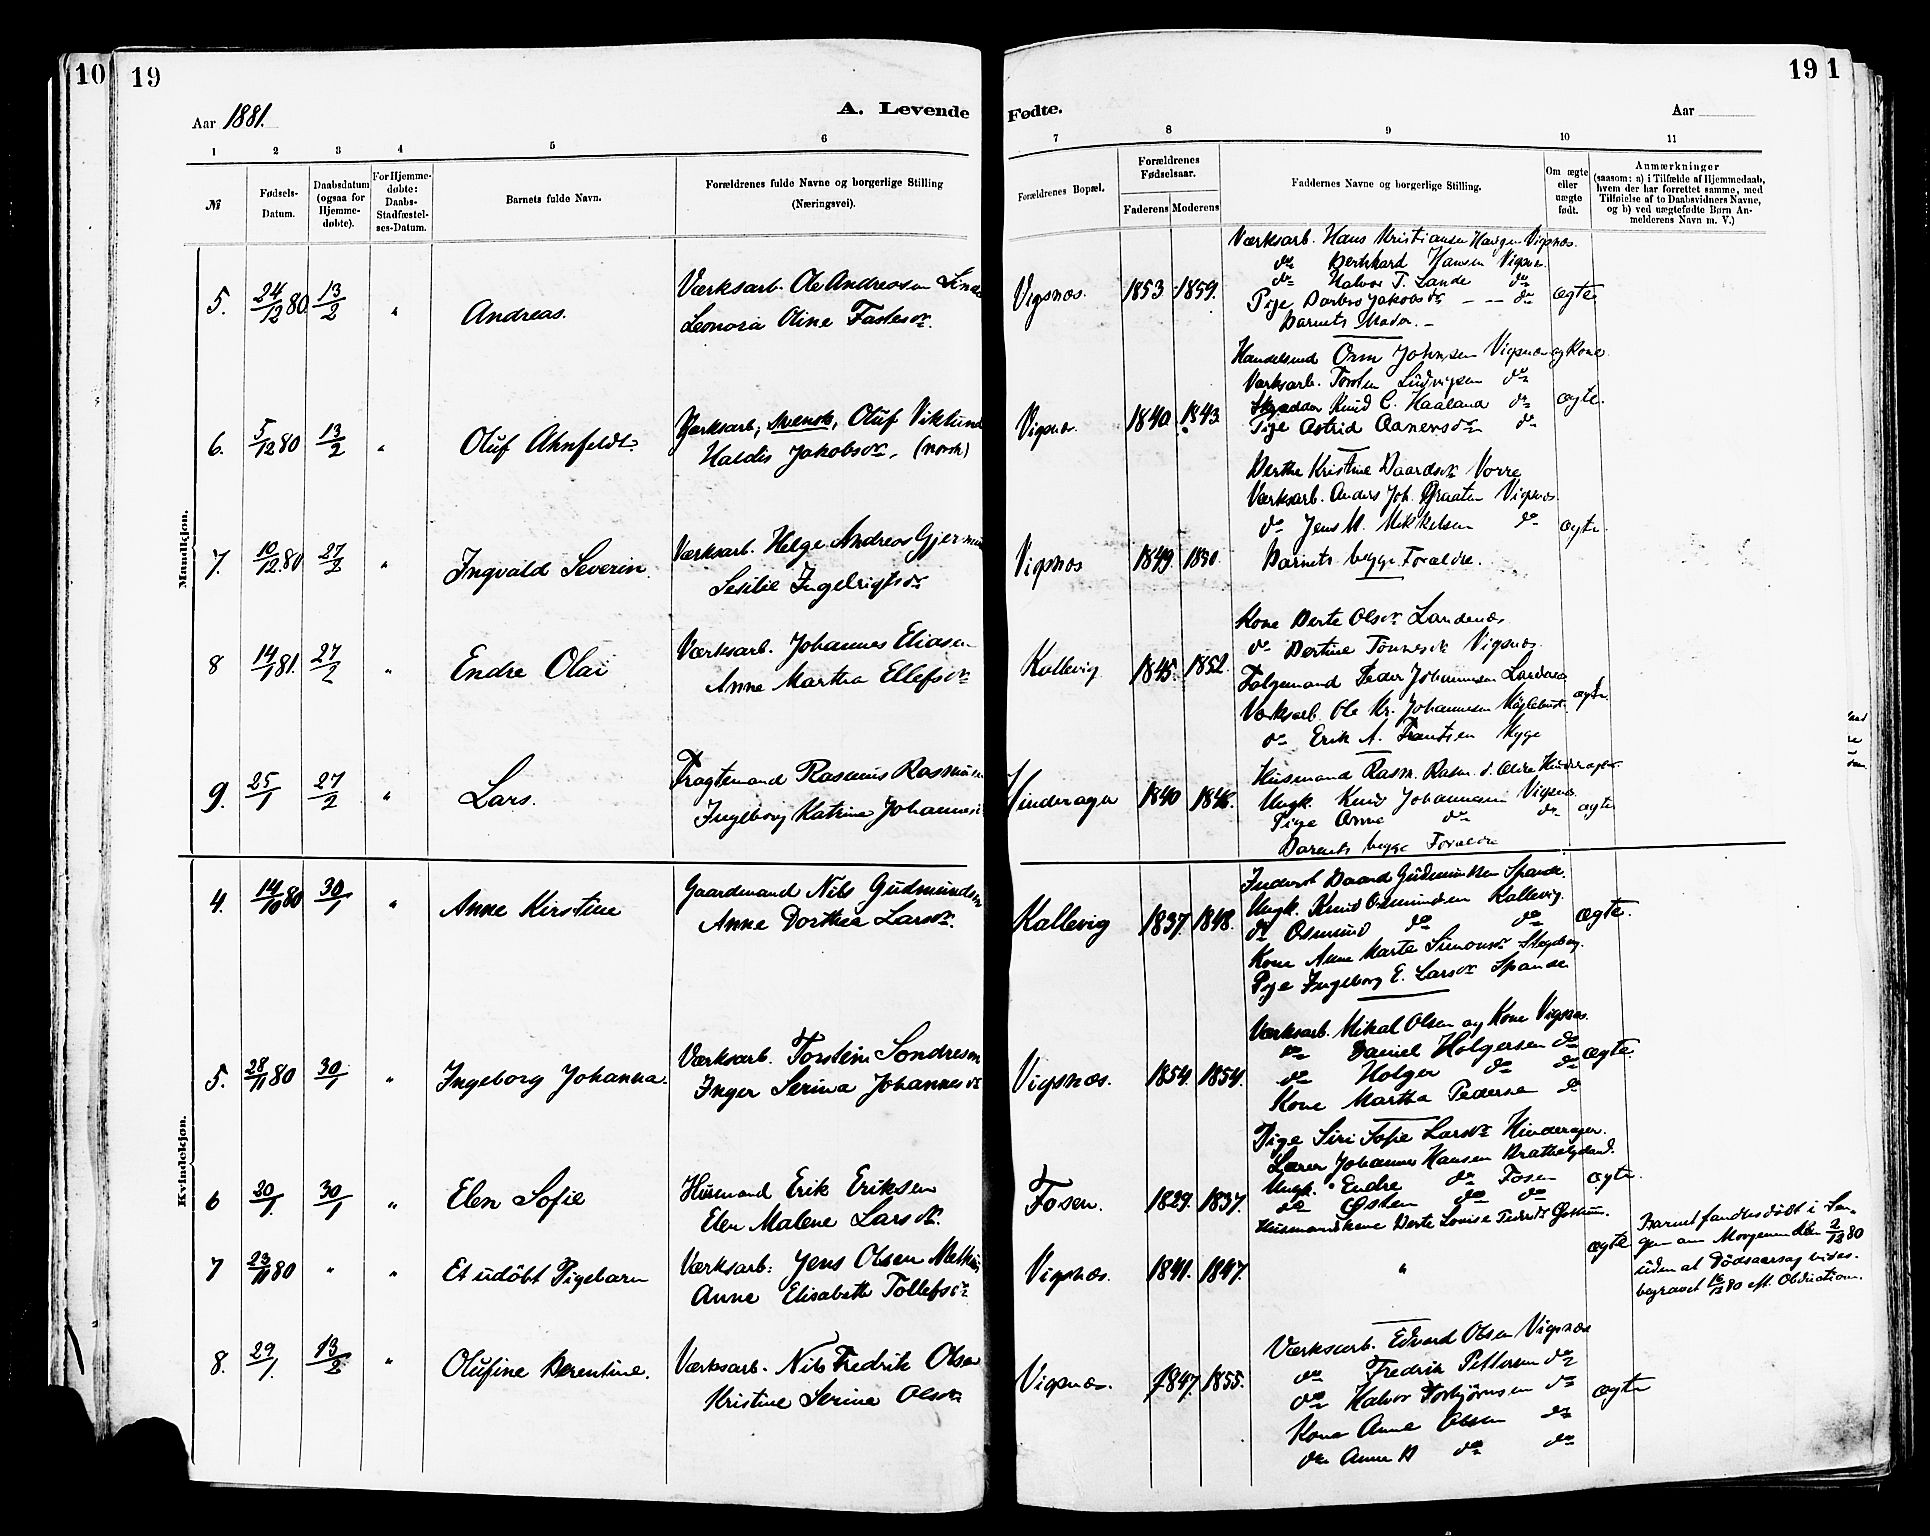 10 19
Aar 1881.
A. Levende
1 2 3 4 5 6
№
Fødsels-Datum.
Daabsdatum (ogsaa for Hjemmedøbte).
For Hjemmedøbte: Daabs-Stadfæstelses-Datum.
Barnets fulde Navn.
Forældrenes fulde Navne og borgerlige Stilling (Næringsvei).
Mandkjøn.
5. 24/12 80 13/2 " Andreas. Værksarb. Ole Andreasen
Leonora Oline
6. 5/12 80 13/2 " Oluf Ahnfeldt. Værksarb, svensk, Oluf Viklund
Haldis Jakobsdr. (norsk)
7. 10/12 80 27/2 " Ingvald Severin. Værksarb. Helge Andreas
Sesilie Ingebrigtsdr
8 14/1 81. 27/2 " Endre Olai Værksarb. Johannes Eliasen
Anne Martha Ellefsdr
9. 25/1 27/2 " Lars. Fragtemand Rasmus Rasmusen
Ingeborg Katrine Johannes
Kvindekjøn.
4. 14/10 80 30/1 " Anne Kirstine Gaardmand Nils Gudmundsen
Anne Dorthea Larsdr.
5. 28/11 80 30/1 " Ingeborg Johanna. Værksarb. Torstein Sondresen
Inger Serina Johannesdr
6 20/1. 30/1 " Elen Sofie Husmand Erik Eriksen
Elen Malene Larsdr.
7 23/11 80 " " Et udøbt Pigebarn Værksarb: Jens Olsen
Anne Elisabeth Tollefsdr
8. 29/1. 13/2 " Olufine Berentine. Værksarb. Nils Fredrik Olsen
Kristine Serine Olsdr
19 1
Fødte.
Aar
7 8 9 10 11
Forældrenes Bopæl.
Forældrenes Fødselsaar.
Faderens Moderens
Faddernes Navne og borgerlige Stilling.
Om ægte eller uægte født.
Anmærkninger
(saasom: a) i Tilfælde af Hjemmedaab, hvem der har forrettet samme, med Tilføielse af to Daabsvidners Navne, og b) ved uægtefødte Børn Anmelderens Navn m. V.)
Vigsnæs. 1853 1859. ægte
Værksarb. Hans Kristiansen Vigsnæs.
do Hansen Vigsnæs.
do Halvor T. Lande do
Pige Barbro Jakobsdr do
Barnets Moder.
Vigsnæs. 1840 1843 ægte.
Handelsmd Orm Johnsen Vigsnæs og Kone.
Værksarb. Torsten Ludvigsen do
Knud C. Haaland do
Pige Astrid do
Vigsnæs 1849. 1850. ægte.
Berthe Kristine Baardsdr
Værksarb. Anders Joh. Vigsnæs.
do Jens M. Mikkelsen do
Barnets begge Forældre.
Kallevig 1845. 1852. ægte.
Kone Berte Olsdr Landenæs
do Bertine Tønnesdr Vigsnæs.
Peder Johannesen
Værksarb. Ole Kr. Johannesen
do Erik A. Frantsen
Hinderager 1840 1848. ægte
Husmand Rasm. Rasm.
Ungk. Knud Johannesen Vigsnæs.
Pige Anne do do
Barnets begge Forældre
Kallevig 1837. 1848. ægte.
Baard Gudmundsen Spande.
Ungk. Knud Osmundsen Kallevig.
do Osmund do do
Kone Anne Marte Simonsdr
Pige Ingeborg E. Larsdr Spande
Vigsnæs. 1854. 1854. ægte.
Værksarb. Mikal Olsen og Kone Vigsnæs.
do Daniel Holgersen do
do Holger do do
Kone Martha Pederse do
Fosen. 1829. 1837. ægte.
Pige Siri Sofie Larsdr Hinderager.
Lærer Johannes Hansen
Ungk. Endre do Fosen
do Østen do do
Husmandskone Berte Lovise
Vigsnæs. 1841. 1847. " ægte
Barnet fandtes dødt i Sengen om Morgenen den 2/12 80
uden at Dødsaarsag vides.
begravet 16/12 80 eft. Obduction.
Vigsnæs. 1847. 1855. ægte
Værksarb. Edvard Olsen Vigsnæs
do Fredrik Pettersen do
do Halvor Torbjørnsen do
Kone Anne Olsen do
do Anne B do do